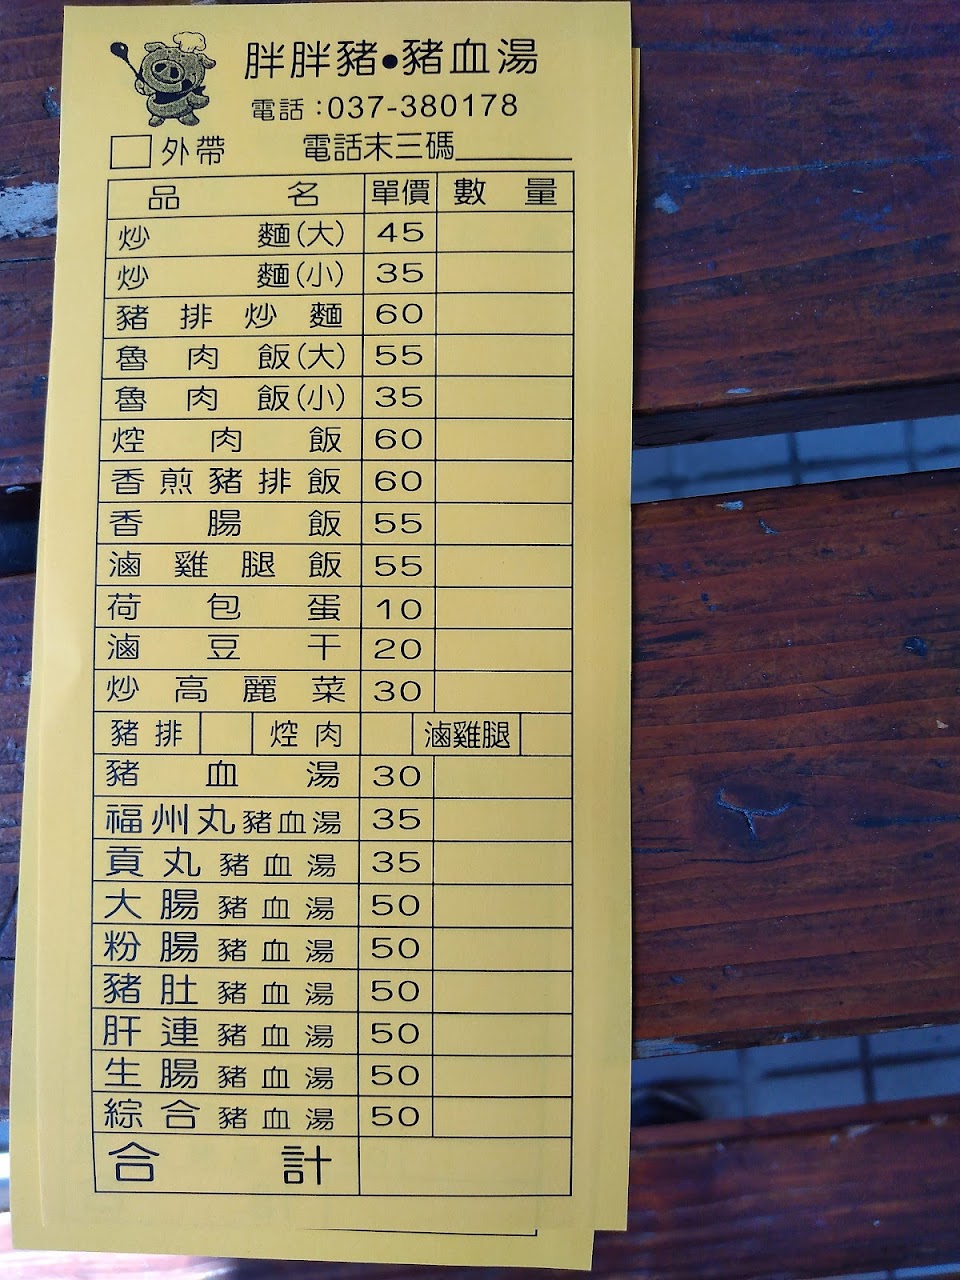 胖胖豬•豬血湯
電話:037-380178
外帶 電話末三碼
品名 單價 數量
炒麵(大) 45
炒麵(小) 35
豬排炒麵 60
魯肉飯(大) 55
魯肉飯(小) 35
焢肉飯 60
香煎豬排飯 60
香腸飯 55
滷雞腿飯 55
荷包蛋 10
滷豆干 20
炒高麗菜 30
豬排 焢肉 滷雞腿
豬血湯 30
福州丸豬血湯 35
貢丸豬血湯 35
大腸豬血湯 50
粉腸豬血湯 50
豬肚豬血湯 50
肝連豬血湯 50
生腸豬血湯 50
綜合豬血湯 50
合計